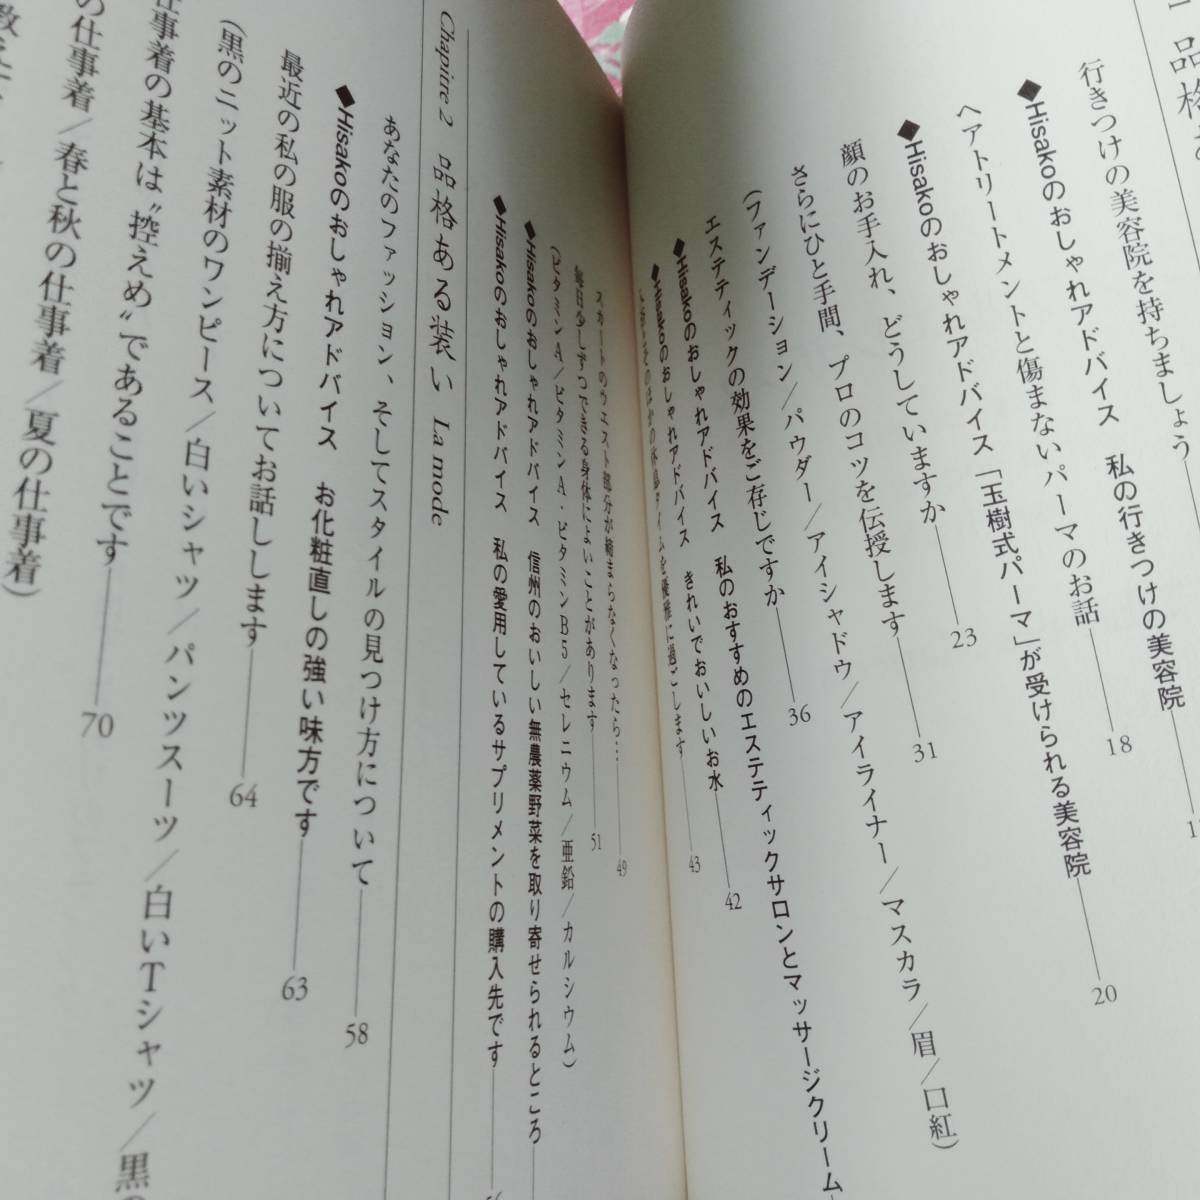 品格
行きつけの美容院を持ちましょう
◆Hisakoのおしゃれアドバイス 私の行きつけの美容院
ヘアトリートメントと傷まないパーマのお話 18
◆Hisakoのおしゃれアドバイス 「玉樹式パーマ」が受けられる美容院 20
顔のお手入れ、どうしていますか 23
さらにひと手間、プロのコツを伝授します 31
(ファンデーション/パウダー/アイシャドウ/アイライナー/マスカラ/眉/口紅)
エステティックの効果をご存じですか 36
◆Hisakoのおしゃれアドバイス 私のおすすめのエステティックサロンとマッサージクリーム
◆Hisakoのおしゃれアドバイス きれいでおいしいお水 42
の休息タイムを優雅に過ごします 43
スカートのウエスト部分が締まらなくなったら… 49
毎日少しずつできる身体によいことがあります 51
(ビタミンA/ビタミンA・ビタミンB5/セレニウム/亜鉛/カルシウム)
◆Hisakoのおしゃれアドバイス 信州のおいしい無農薬野菜を取り寄せられるところ
◆Hisakoのおしゃれアドバイス 私の愛用しているサプリメントの購入先です
Chapitre 2 品格ある装い La mode
あなたのファッション、そしてスタイルの見つけ方について 58
◆Hisakoのおしゃれアドバイス お化粧直しの強い味方です 63
最近の私の服の揃え方についてお話しします 64
(黒のニット素材のワンピース/白いシャツ/パンツスーツ/白いTシャツ/黒の
仕事着の基本は〝控えめ〟であることです 70
の仕事着/春と秋の仕事着/夏の仕事着)